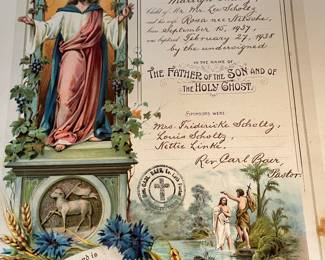 Child of Mr. Leo Scholtz
and his wife Rosa nee Nitsche
born September 15, 1937,
was baptized February 27, 1938
by the undersigned
IN THE NAME OF
THE FATHER OF THE SON AND OF
THE HOLY GHOST.
SPONSORS WERE
Mrs. Friderike Scholtz,
Louis Scholtz,
Nettie Linke.
Rev. Carl Baer,
Pastor.
REV. CARL BAER